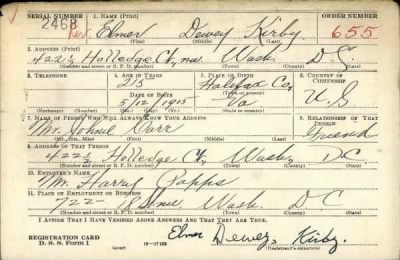 SERIAL NUMBER 1. NAME (Print) ORDER NUMBER
2468 Elmer Dewey Kirby 655
(First) (Middle) (Last)
2. ADDRESS (Print)
422½ Holledge Ct, nw. Wash. D.C.
(Number and street or R. F. D. number) (Town) (County) (State)
3. TELEPHONE 4. AGE IN YEARS 5. PLACE OF BIRTH 6. COUNTRY OF CITIZENSHIP
25 Halifax Co. U.S
DATE OF BIRTH (Town or county)
5/12/1915 Va
(Exchange) (Number) (Mo.) (Day) (Yr.) (State or country)
7. NAME OF PERSON WHO WILL ALWAYS KNOW YOUR ADDRESS 8. RELATIONSHIP OF THAT PERSON
Mr. Johnie Carr Friend
(Mr., Mrs., Miss) (First) (Middle) (Last)
9. ADDRESS OF THAT PERSON
422½ Holledge Ct, Wash, D.C.
(Number and street or R. F. D. number) (Town) (County) (State)
10. EMPLOYER'S NAME
Mr. Harry Papps
11. PLACE OF EMPLOYMENT OR BUSINESS
722- Wash. D C
(Number and street or R. F. D. number) (Town) (County) (State)
I AFFIRM THAT I HAVE VERIFIED ABOVE ANSWERS AND THAT THEY ARE TRUE.
REGISTRATION CARD
D. S. S. Form 1 (over) 16—17105 Elmer Dewey Kirby
(Registrant's signature)